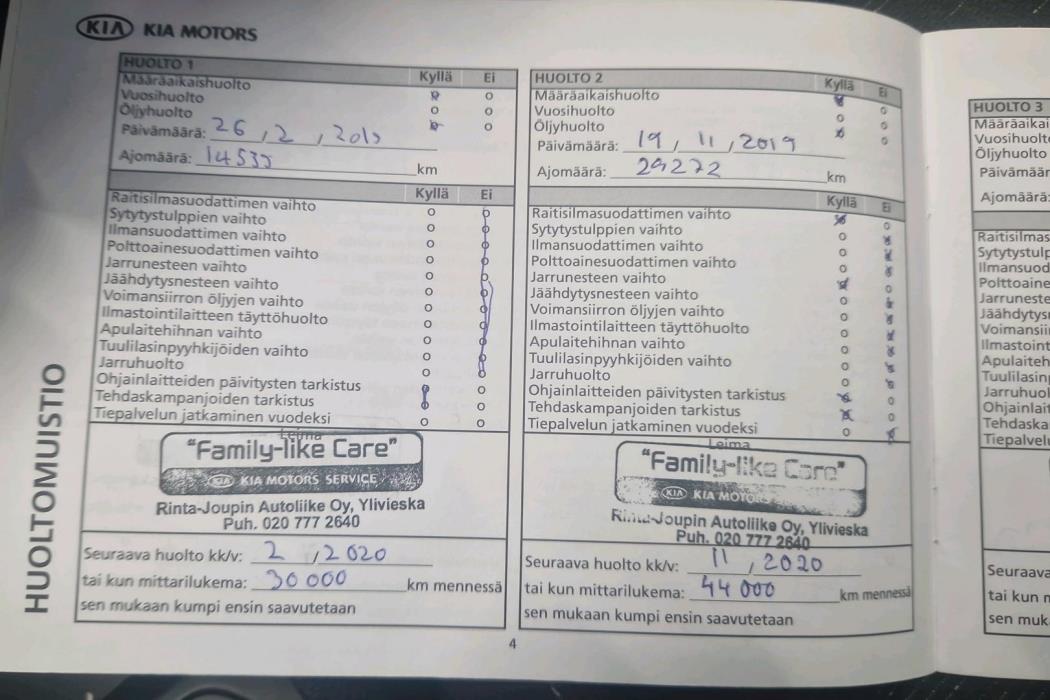 KIA KIA MOTORS
HUOLTOMUISTIO
HUOLTO 1 Kyllä Ei
Määräaikaishuolto
Vuosihuolto
Öljyhuolto
Päivämäärä: 26, 2,
Ajomäärä: km
Kyllä Ei
Raitisilmasuodattimen vaihto
Sytytystulppien vaihto
Ilmansuodattimen vaihto
Polttoainesuodattimen vaihto
Jarrunesteen vaihto
Jäähdytysnesteen vaihto
Voimansiirron öljyjen vaihto
Ilmastointilaitteen täyttöhuolto
Apulaitehihnan vaihto
Tuulilasinpyyhkijöiden vaihto
Jarruhuolto
Ohjainlaitteiden päivitysten tarkistus
Tehdaskampanjoiden tarkistus
Tiepalvelun jatkaminen vuodeksi
Leima
"Family-like Care"
KIA KIA MOTORS SERVICE
Rinta-Joupin Autoliike Oy, Ylivieska
Puh. 020 777 2640
Seuraava huolto kk/v: 2, 2020
tai kun mittarilukema: 30 000 km mennessä
sen mukaan kumpi ensin saavutetaan
HUOLTO 2 Kyllä Ei
Määräaikaishuolto
Vuosihuolto
Öljyhuolto
Päivämäärä: 19, 11, 2019
Ajomäärä: 29272 km
Kyllä Ei
Raitisilmasuodattimen vaihto
Sytytystulppien vaihto
Ilmansuodattimen vaihto
Polttoainesuodattimen vaihto
Jarrunesteen vaihto
Jäähdytysnesteen vaihto
Voimansiirron öljyjen vaihto
Ilmastointilaitteen täyttöhuolto
Apulaitehihnan vaihto
Tuulilasinpyyhkijöiden vaihto
Jarruhuolto
Ohjainlaitteiden päivitysten tarkistus
Tehdaskampanjoiden tarkistus
Tiepalvelun jatkaminen vuodeksi
Leima
"Family-like Care"
KIA KIA MOTORS
Rinta-Joupin Autoliike Oy, Ylivieska
Puh. 020 777 2640
Seuraava huolto kk/v: 11, 2020
tai kun mittarilukema: 44 000 km mennessä
sen mukaan kumpi ensin saavutetaan
4
HUOLTO 3
Määräaikai
Vuosihuolto
Öljyhuolto
Päivämäär
Ajomäärä:
Raitisilmas
Sytytystulp
Ilmansuod
Polttoaine
Jarruneste
Jäähdytysn
Voimansiir
Ilmastoint
Apulaiteh
Tuulilasinp
Jarruhuol
Ohjainlait
Tehdaska
Tiepalvelu
Seuraava
tai kun m
sen muk